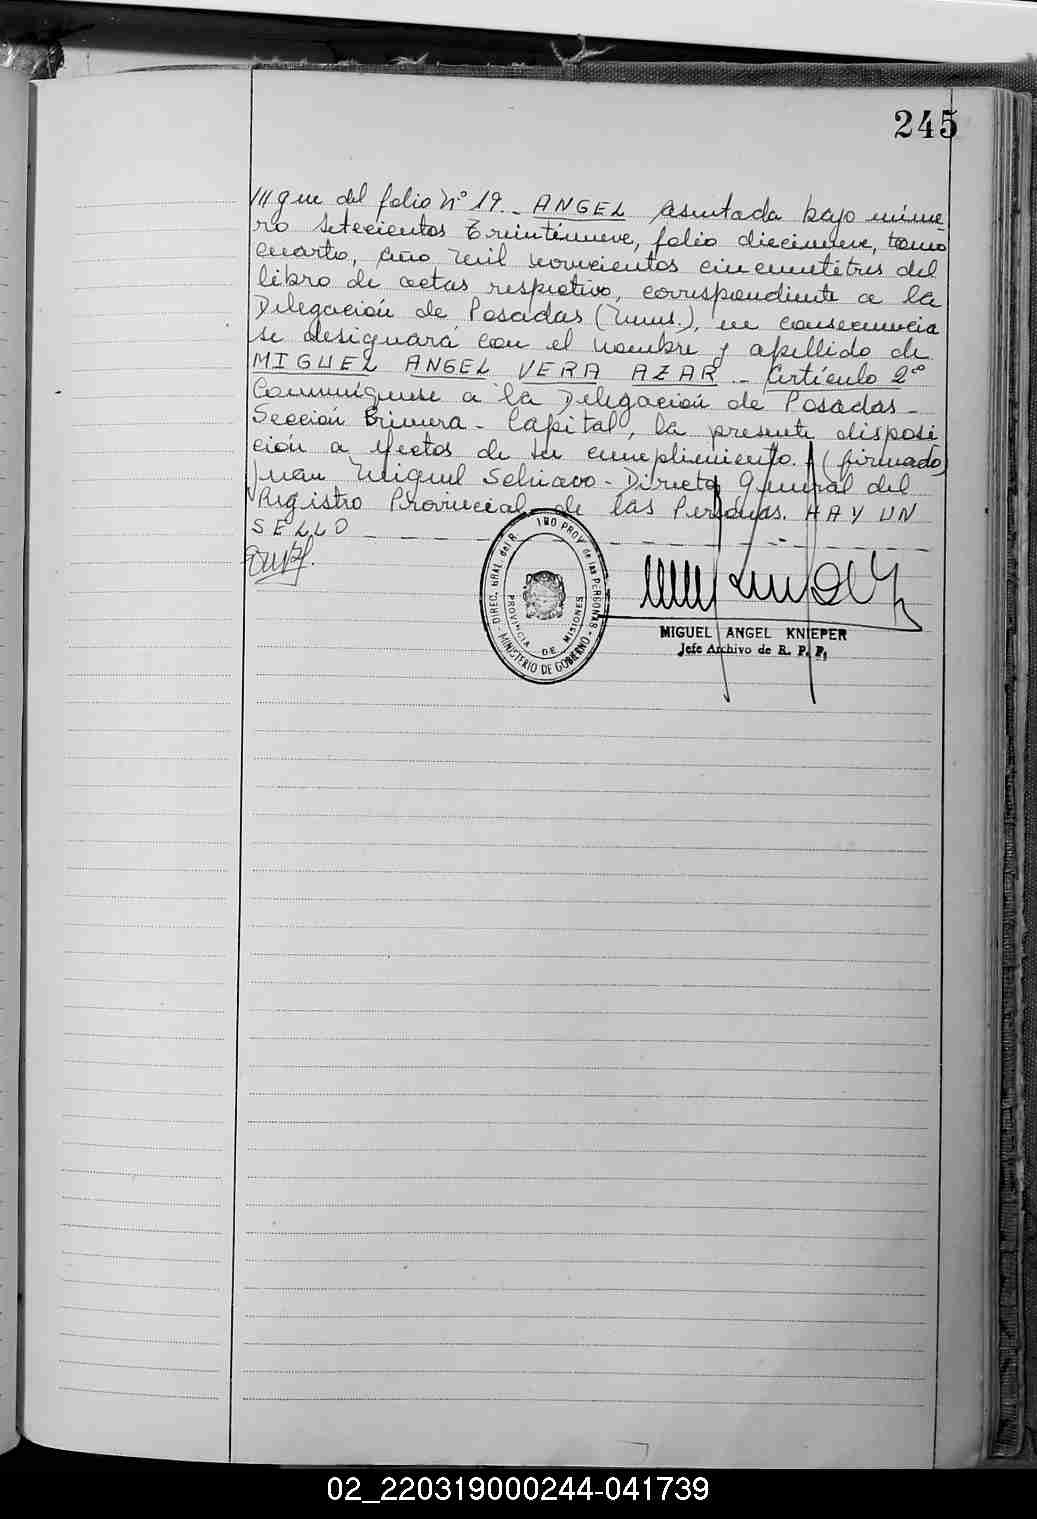 245
///gue del folio Nº 19. - ANGEL asentada bajo núme-
ro setecientos treintinueve, folio diecinueve, tomo
cuarto, año mil novecientos cincuentitres del
libro de actas respectivo, correspondiente a la
Delegación de Posadas (Mnes.), en consecuencia
se designará con el nombre y apellido de
MIGUEL ANGEL VERA AZAR - Artículo 2º
Comuníquese a la Delegación de Posadas -
Sección Primera - Capital, la presente disposi
ción a efectos de su cumplimiento. (firmado)
Juan Miguel Schiavo - Director General del
Registro Provincial de las Personas. HAY UN
SELLO
DIREC. GRAL. del R. PROV. de las PERSONAS
MINISTERIO DE GOBIERNO
PROVINCIA DE MISIONES
MIGUEL ANGEL KNIEPER
Jefe Archivo de R. P. P.
02_220319000244-041739